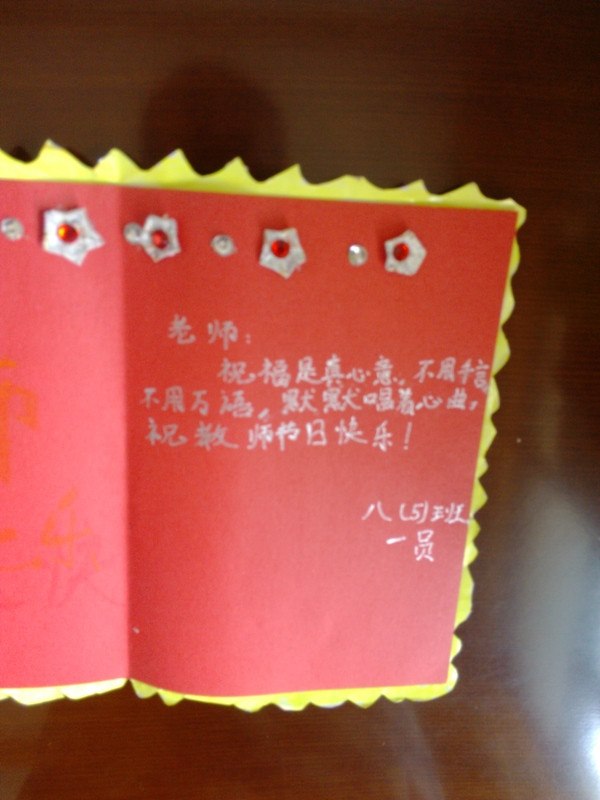 老师：
祝福是真心意，不用千言
不用万语，默默唱着心曲，
祝教师节日快乐！
八（5）班
一员
师
快乐